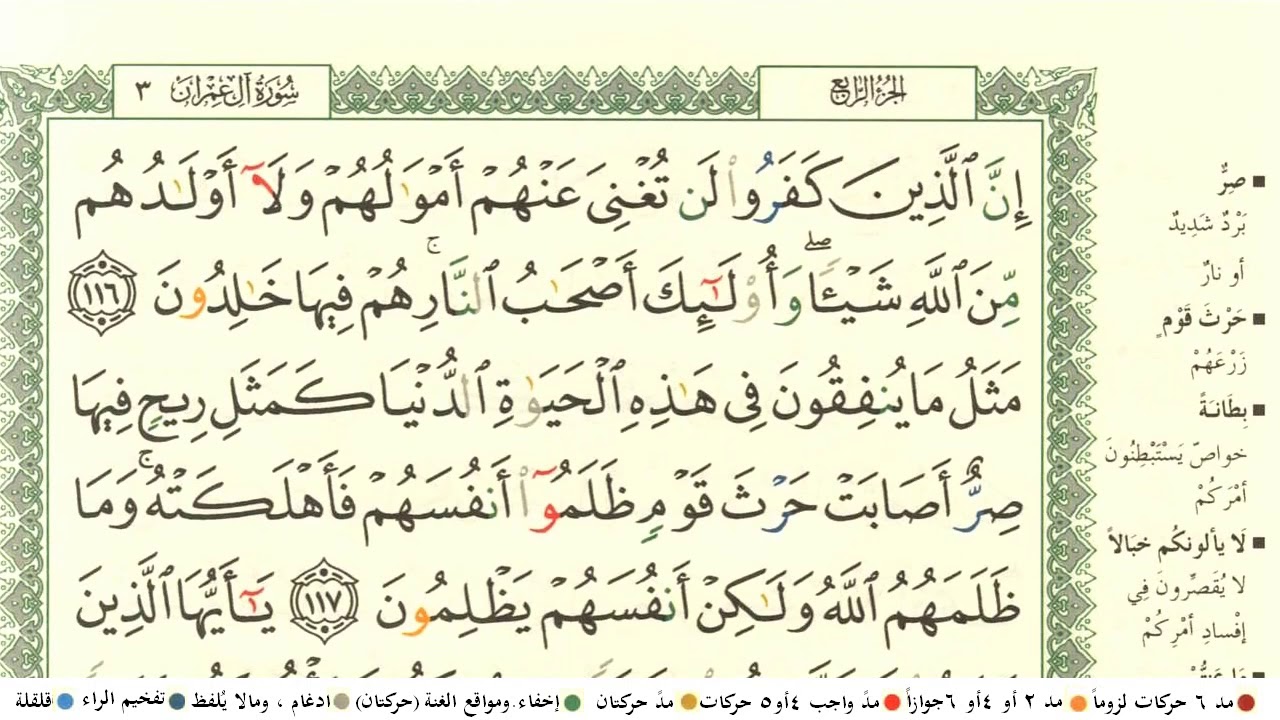 سُورَةُ آلِ عِمْرَان ٣
الجُزْءُ الرَّابِع
إِنَّ ٱلَّذِينَ كَفَرُوا۟ لَن تُغْنِىَ عَنْهُمْ أَمْوَٰلُهُمْ وَلَآ أَوْلَـٰدُهُم
مِّنَ ٱللَّهِ شَيْـًٔا ۖ وَأُو۟لَـٰٓئِكَ أَصْحَـٰبُ ٱلنَّارِ ۚ هُمْ فِيهَا خَـٰلِدُونَ ١١٦
مَثَلُ مَا يُنفِقُونَ فِى هَـٰذِهِ ٱلْحَيَوٰةِ ٱلدُّنْيَا كَمَثَلِ رِيحٍ فِيهَا
صِرٌّ أَصَابَتْ حَرْثَ قَوْمٍ ظَلَمُوٓا۟ أَنفُسَهُمْ فَأَهْلَكَتْهُ ۚ وَمَا
ظَلَمَهُمُ ٱللَّهُ وَلَـٰكِنْ أَنفُسَهُمْ يَظْلِمُونَ ١١٧ يَـٰٓأَيُّهَا ٱلَّذِينَ
■ صِرٌّ
بَرْدٌ شَدِيدٌ
أو نارٌ
■ حَرْثَ قَوْمٍ
زَرْعَهُمْ
■ بِطَانَـةً
خواصّ يَسْتَبْطِنُونَ
أمْرَكُمْ
■ لَا يألونكُم خبَالاً
لا يُقَصِّرونَ فِي
إفْسادِ أمْرِكُمْ
مد ٦ حركات لزوماً ● مد ٢ أو ٤أو ٦جوازاً ● مدّ واجب ٤أو٥ حركات ● مدّ حركتان ● إخفاء. ومواقع الغنة (حركتان) ● ادغام ، ومالا يُلفظ ● تفخيم الراء ● قلقلة